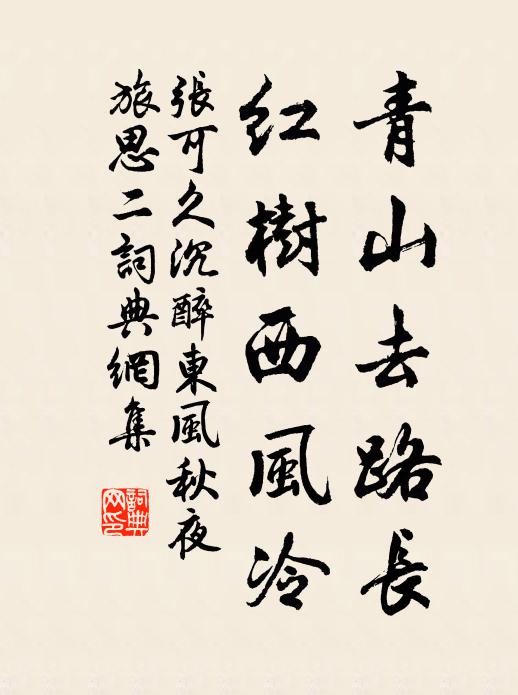 青山去路長
紅樹西風冷
張可久沉醉東風秋夜
旅思二詞典網集
詞典
网印